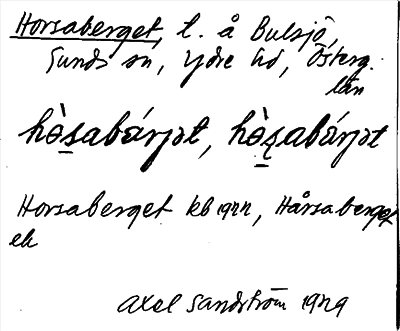 Horsaberget, t. å Bulsjö,
Sunds sn, Ydre hd, Österg.
län
hò̱sabárjət, hò̱ʂabárjət
Horsaberget kb 1922, Hårsaberget
ek
Axel Sandström 1929